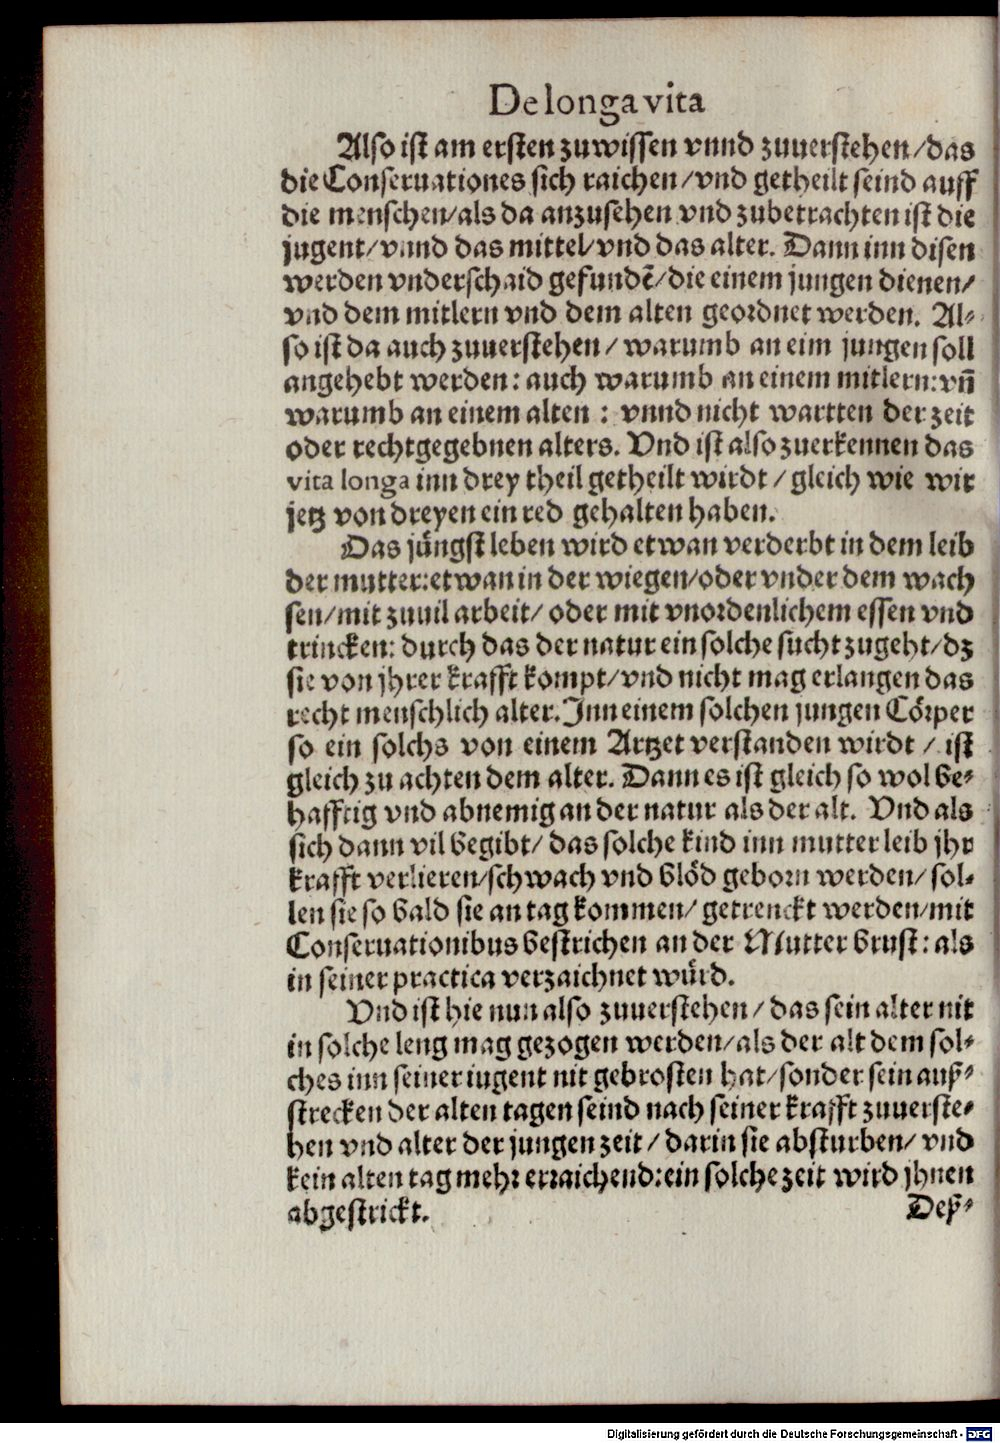 De longa vita
Also ist am ersten zuwissen vnnd zuuerstehen/das
die Conseruationes sich raichen/vnd getheilt seind auff
die menschen/als da anzusehen vnd zubetrachten ist die
jugent/vnnd das mittel/vnd das alter. Dann inn disen
werden vnderschaid gefundē/die einem jungen dienen/
vnd dem mitlern vnd dem alten geordnet werden. Al-
so ist da auch zuuerstehen/ warumb an eim jungen soll
angehebt werden: auch warumb an einem mitlern: vñ
warumb an einem alten : vnnd nicht wartten der zeit
oder rechtgegebnen alters. Vnd ist also zuerkennen das
vita longa inn drey theil getheilt wirdt / gleich wie wir
jetz von dreyen ein red gehalten haben.
Das jüngst leben wird etwan verderbt in dem leib
der mutter: etwan in der wiegen/oder vnder dem wach
sen/mit zuuil arbeit/ oder mit vnordenlichem essen vnd
trincken: durch das der natur ein solche sucht zugeht/dz
sie von jhrer krafft kompt/vnd nicht mag erlangen das
recht menschlich alter. Inn einem solchen jungen Cörper
so ein solchs von einem Artzet verstanden wirdt / ist
gleich zu achten dem alter. Dann es ist gleich so wol be-
hafftig vnd abnemig an der natur als der alt. Vnd als
sich dann vil begibt/ das solche kind inn mutter leib jhr
krafft verlieren/schwach vnd blöd geborn werden/ sol-
len sie so bald sie an tag kommen/ getrenckt werden/mit
Conseruationibus bestrichen an der Mutter brust: als
in seiner practica verzaichnet würd.
Vnd ist hie nun also zuuerstehen/ das sein alter nit
in solche leng mag gezogen werden/als der alt dem sol-
ches inn seiner iugent nit gebrosten hat/sonder sein auß-
strecken der alten tagen seind nach seiner krafft zuuerste-
hen vnd alter der jungen zeit/ darin sie absturben/ vnd
kein alten tag mehr erraichend: ein solche zeit wird jhnen
abgestrickt.
Deß-
Digitalisierung gefördert durch die Deutsche Forschungsgemeinschaft - DFG